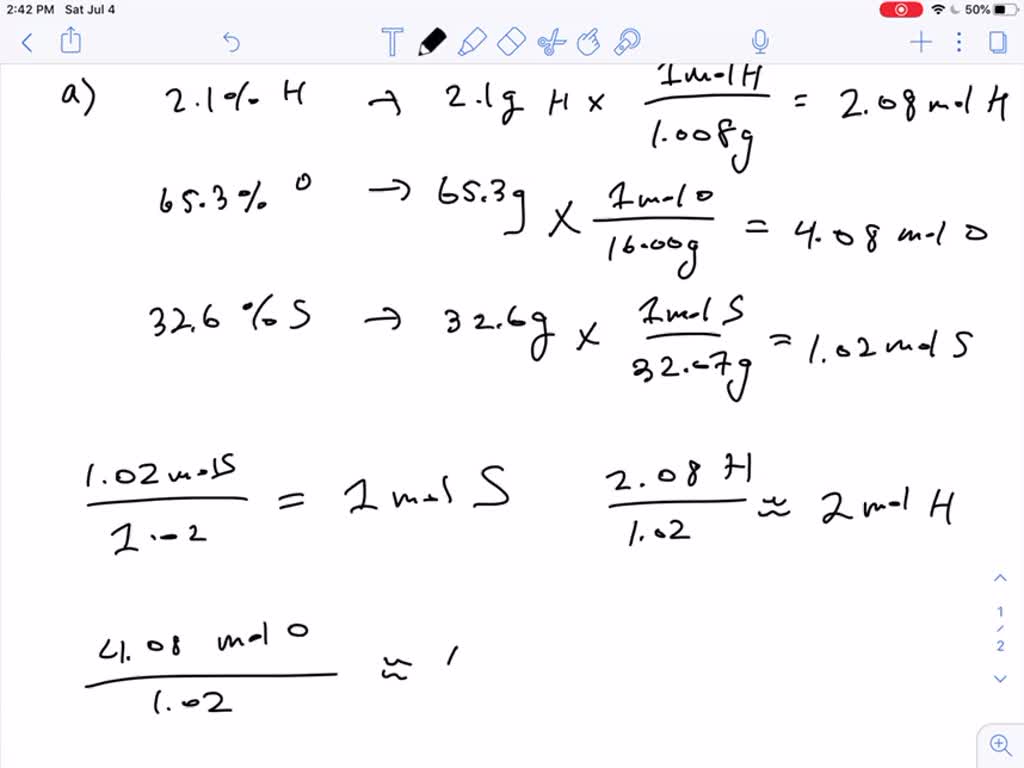 2:42 PM Sat Jul 4 50%
T
a) 2.1% H → 2.1g H × 1 mol H / 1.008g = 2.08 mol H
65.3% O → 65.3g × 1 mol O / 16.00g = 4.08 mol O
32.6 % S → 32.6g × 1 mol S / 32.07g = 1.02 mol S
1.02 mol S / 1.02 = 1 mol S 2.08 H / 1.02 ≈ 2 mol H
4.08 mol O / 1.02 ≈
1 / 2